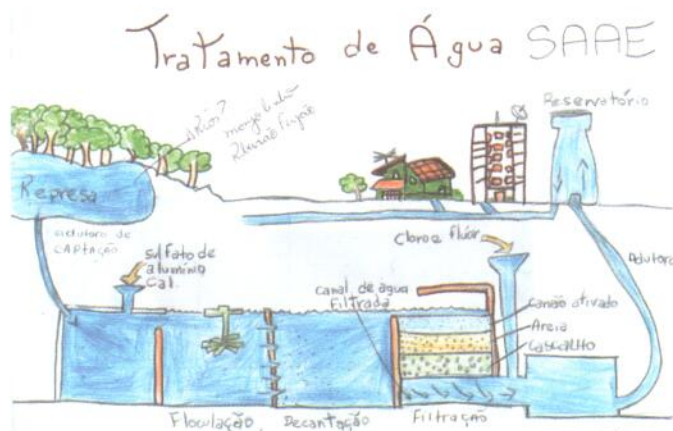 Tratamento de Água SAAE
Reservatório
Rios?
Represa
adutora de
CAPTAÇÃO
sulfato de
alumínio
Cal.
Cloro e flúor
Adutora
canal de água
Filtrada
Areia
Cascalho
Floculação
Decantação
Filtração